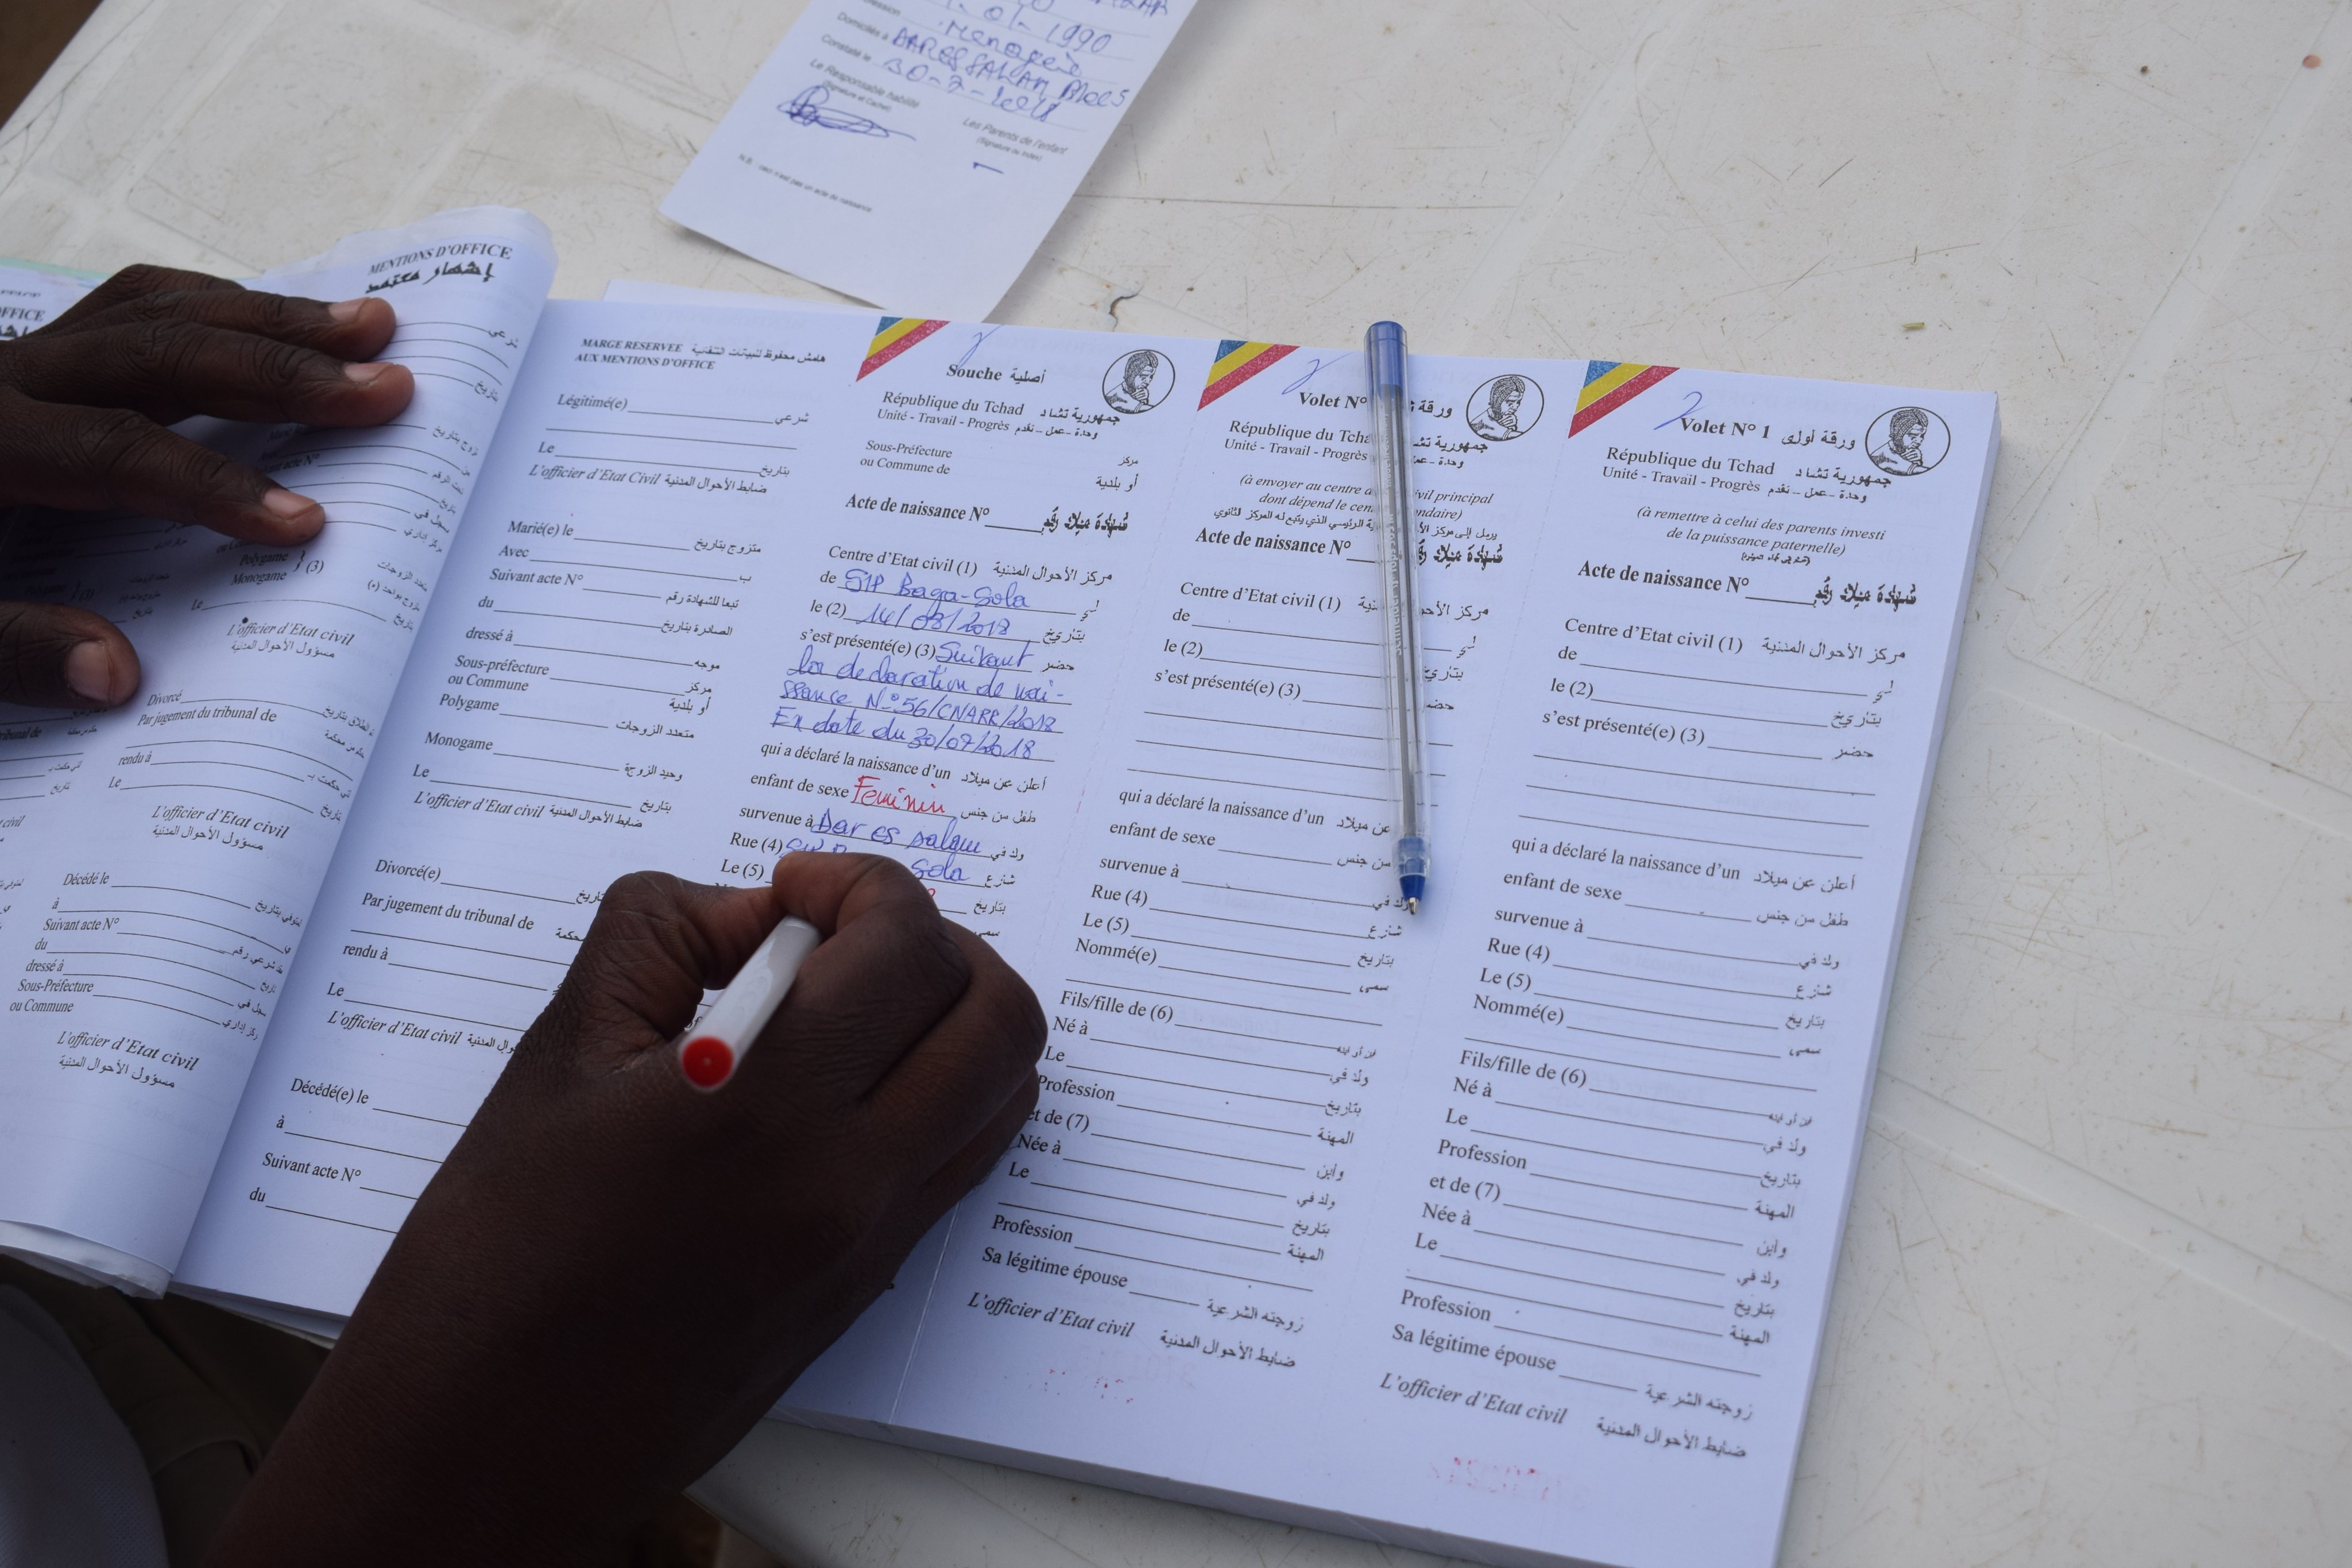 1-01-1990
Menagère
Domiciliés à DARES SALAM Bloc 5
Constaté le 30-7-2018
Le Responsable habilité
(Signature et Cachet)
Les Parents de l'enfant
(Signature ou Index)
N.B. : ceci n'est pas un acte de naissance
OFFICE
MENTIONS D'OFFICE
إشهار معتمد
شرعي
بتاريخ
Polygame
Monogame } (3)
Le
L'officier d'Etat civil
مسؤول الأحوال المدنية
Divorcé
Par jugement du tribunal de
rendu à
Le
L'officier d'Etat civil
مسؤول الأحوال المدنية
Décédé le
à
Suivant acte N°
du
dressé à
Sous-Préfecture
ou Commune
L'officier d'Etat civil
مسؤول الأحوال المدنية
MARGE RESERVEE
AUX MENTIONS D'OFFICE
Légitimé(e) شرعي
Le بتاريخ
L'officier d'Etat Civil ضابط الأحوال المدنية
Marié(e) le متزوج بتاريخ
Avec ب
Suivant acte N° تبعا للشهادة رقم
du الصادرة بتاريخ
dressé à موجه
Sous-préfecture مركز
ou Commune أو بلدية
Polygame متعدد الزوجات
Monogame وحيد الزوجة
Le بتاريخ
L'officier d'Etat civil ضابط الأحوال المدنية
Divorcé(e)
Par jugement du tribunal de محكمة
rendu à
Le
L'officier d'Etat civil
Décédé(e) le
à
Suivant acte N°
du
2
Souche أصلية
République du Tchad جمهورية تشاد
Unité - Travail - Progrès وحدة - عمل - تقدم
Sous-Préfecture مركز
ou Commune de أو بلدية
Acte de naissance N° شهادة ميلاد رقم
Centre d'Etat civil (1) مركز الأحوال المدنية
de S/P Baga-Sola في
le (2) 14/08/2018 بتاريخ
s'est présenté(e) (3) Suivant حضر
la declaration de nai-
ssance N°:56/CNARR/2018
En date du 30/07/2018
qui a déclaré la naissance d'un أعلن عن ميلاد
enfant de sexe Feminin طفل من جنس
survenue à Dar es salam ولد في
Rue (4) Sola شارع
Le (5) بتاريخ
سمى
2
Volet N° ورقة
République du Tchad جمهورية تشاد
Unité - Travail - Progrès وحدة - عمل - تقدم
(à envoyer au centre civil principal
dont dépend le
Acte de naissance N° شهادة ميلاد
Centre d'Etat civil (1)
de في
le (2) بتاريخ
s'est présenté(e) (3) حضر
qui a déclaré la naissance d'un عن ميلاد
enfant de sexe من جنس
survenue à ولد في
Rue (4) شارع
Le (5) بتاريخ
Nommé(e) سمى
Fils/fille de (6)
Né à ولد في
Le بتاريخ
Profession المهنة
et de (7) وابن
Née à ولد في
Le بتاريخ
Profession المهنة
Sa légitime épouse زوجته الشرعية
L'officier d'Etat civil ضابط الأحوال المدنية
2
Volet N° 1 ورقة أولى
République du Tchad جمهورية تشاد
Unité - Travail - Progrès وحدة - عمل - تقدم
(à remettre à celui des parents investi
de la puissance paternelle)
Acte de naissance N° شهادة ميلاد رقم
Centre d'Etat civil (1) مركز الأحوال المدنية
de في
le (2) بتاريخ
s'est présenté(e) (3) حضر
qui a déclaré la naissance d'un أعلن عن ميلاد
enfant de sexe طفل من جنس
survenue à ولد في
Rue (4) شارع
Le (5) بتاريخ
Nommé(e) سمى
Fils/fille de (6)
Né à ولد في
Le بتاريخ
Profession المهنة
et de (7) وابن
Née à ولد في
Le بتاريخ
Profession المهنة
Sa légitime épouse زوجته الشرعية
L'officier d'Etat civil ضابط الأحوال المدنية